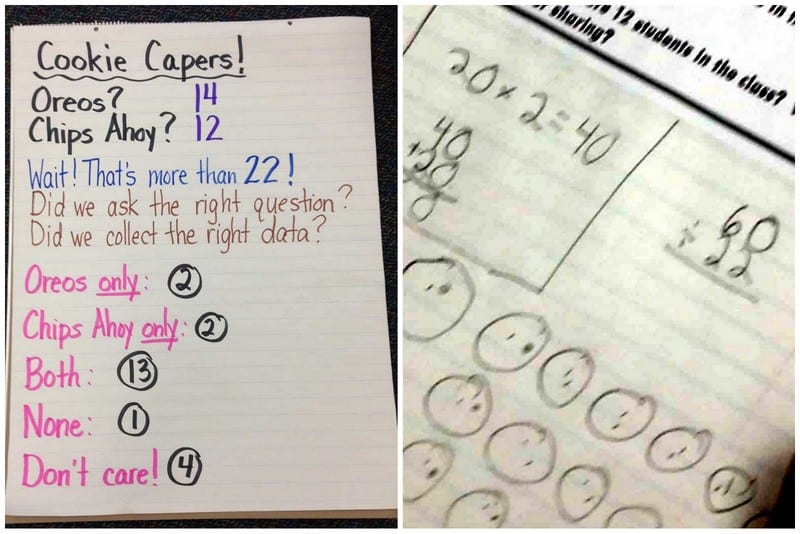 Cookie Capers!
Oreos? 14
Chips Ahoy? 12
Wait! That's more than 22!
Did we ask the right question?
Did we collect the right data?
Oreos only: 2
Chips Ahoy only: 2
Both: 13
None: 1
Don't care! 4
12 students in the class?
sharing?
20 × 2 = 40
40
20
60
÷ 22